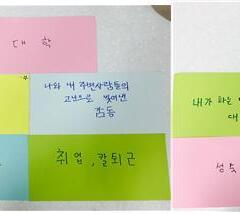 대학
나와 내 주변사람들의
고민으로 빚어낸
감동
취업, 칼퇴근
내가 하는
대
성숙